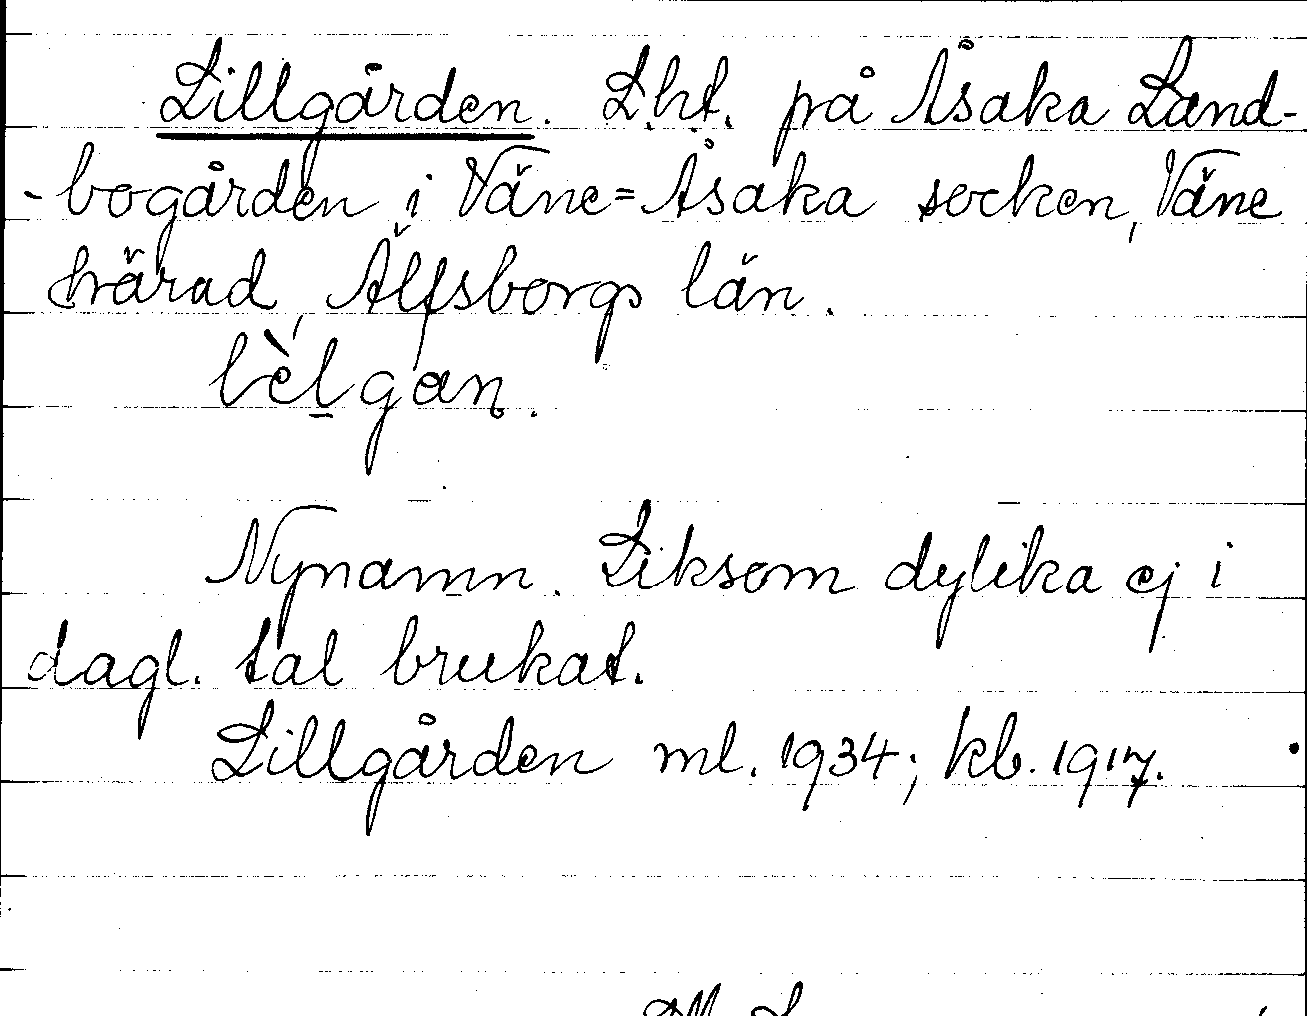 Lillgården. Lht. på Åsaka Land-
-bogården i Väne=Åsaka socken, Väne
härad, Älfsborgs län.
lèlgan.
Nynamn. Liksom dylika ej i
dagl. tal brukat.
Lillgården ml. 1934; kb. 1917.